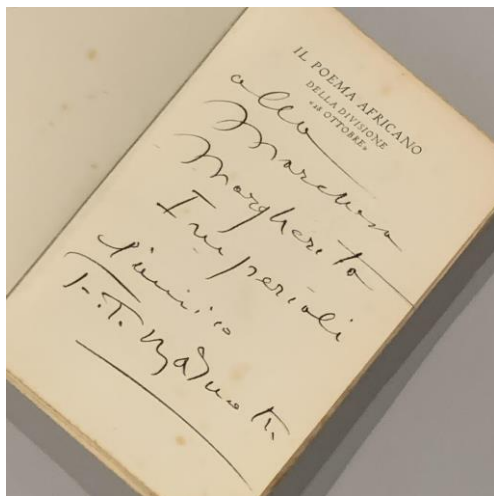 IL POEMA AFRICANO
DELLA DIVISIONE
«28 OTTOBRE»
alla
Marchesa
Margherita
Imperiali
l'amico
F. T. Marinetti